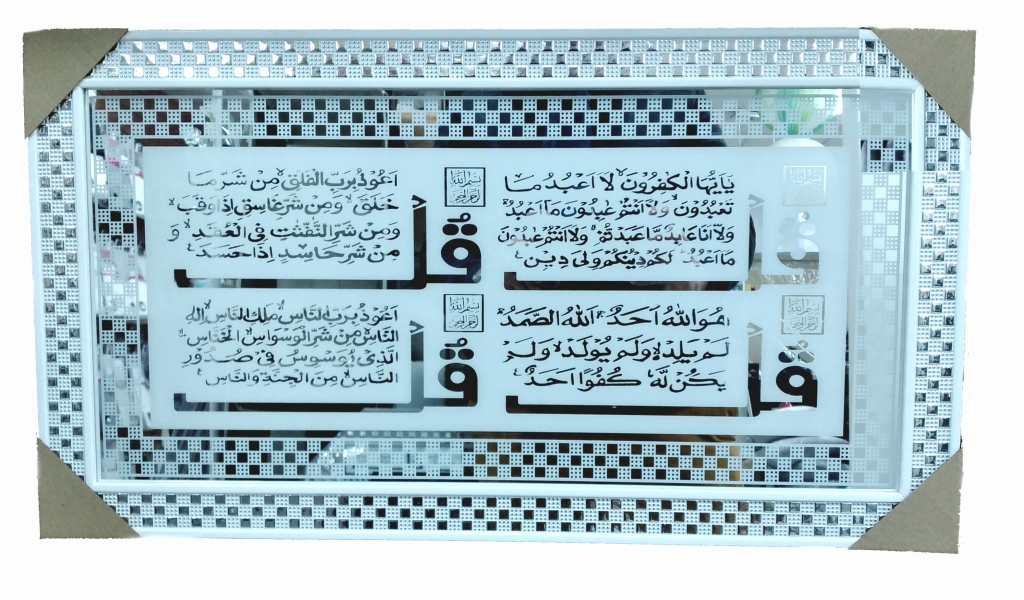 بسم الله الرحمن الرحيم
قل
يٰٓاَيُّهَا الْكٰفِرُوْنَ لَا اَعْبُدُ مَا
تَعْبُدُوْنَ وَلَا اَنْتُمْ عٰبِدُوْنَ مَا اَعْبُدُ
وَلَا اَنَا عَابِدٌ مَّا عَبَدْتُّمْ وَلَا اَنْتُمْ عٰبِدُوْنَ
مَا اَعْبُدُ لَكُمْ دِيْنُكُمْ وَلِيَ دِيْنِ
بسم الله الرحمن الرحيم
قل
اَعُوْذُ بِرَبِّ الْفَلَقِ مِنْ شَرِّ مَا
خَلَقَ وَمِنْ شَرِّ غَاسِقٍ اِذَا وَقَبَ
وَمِنْ شَرِّ النَّفّٰثٰتِ فِي الْعُقَدِ وَ
مِنْ شَرِّ حَاسِدٍ اِذَا حَسَدَ
بسم الله الرحمن الرحيم
قل
هُوَ اللّٰهُ اَحَدٌ اَللّٰهُ الصَّمَدُ
لَمْ يَلِدْ وَلَمْ يُوْلَدْ وَلَمْ
يَكُنْ لَّهٗ كُفُوًا اَحَدٌ
بسم الله الرحمن الرحيم
قل
اَعُوْذُ بِرَبِّ النَّاسِ مَلِكِ النَّاسِ اِلٰهِ
النَّاسِ مِنْ شَرِّ الْوَسْوَاسِ الْخَنَّاسِ
الَّذِيْ يُوَسْوِسُ فِيْ صُدُوْرِ
النَّاسِ مِنَ الْجِنَّةِ وَالنَّاسِ